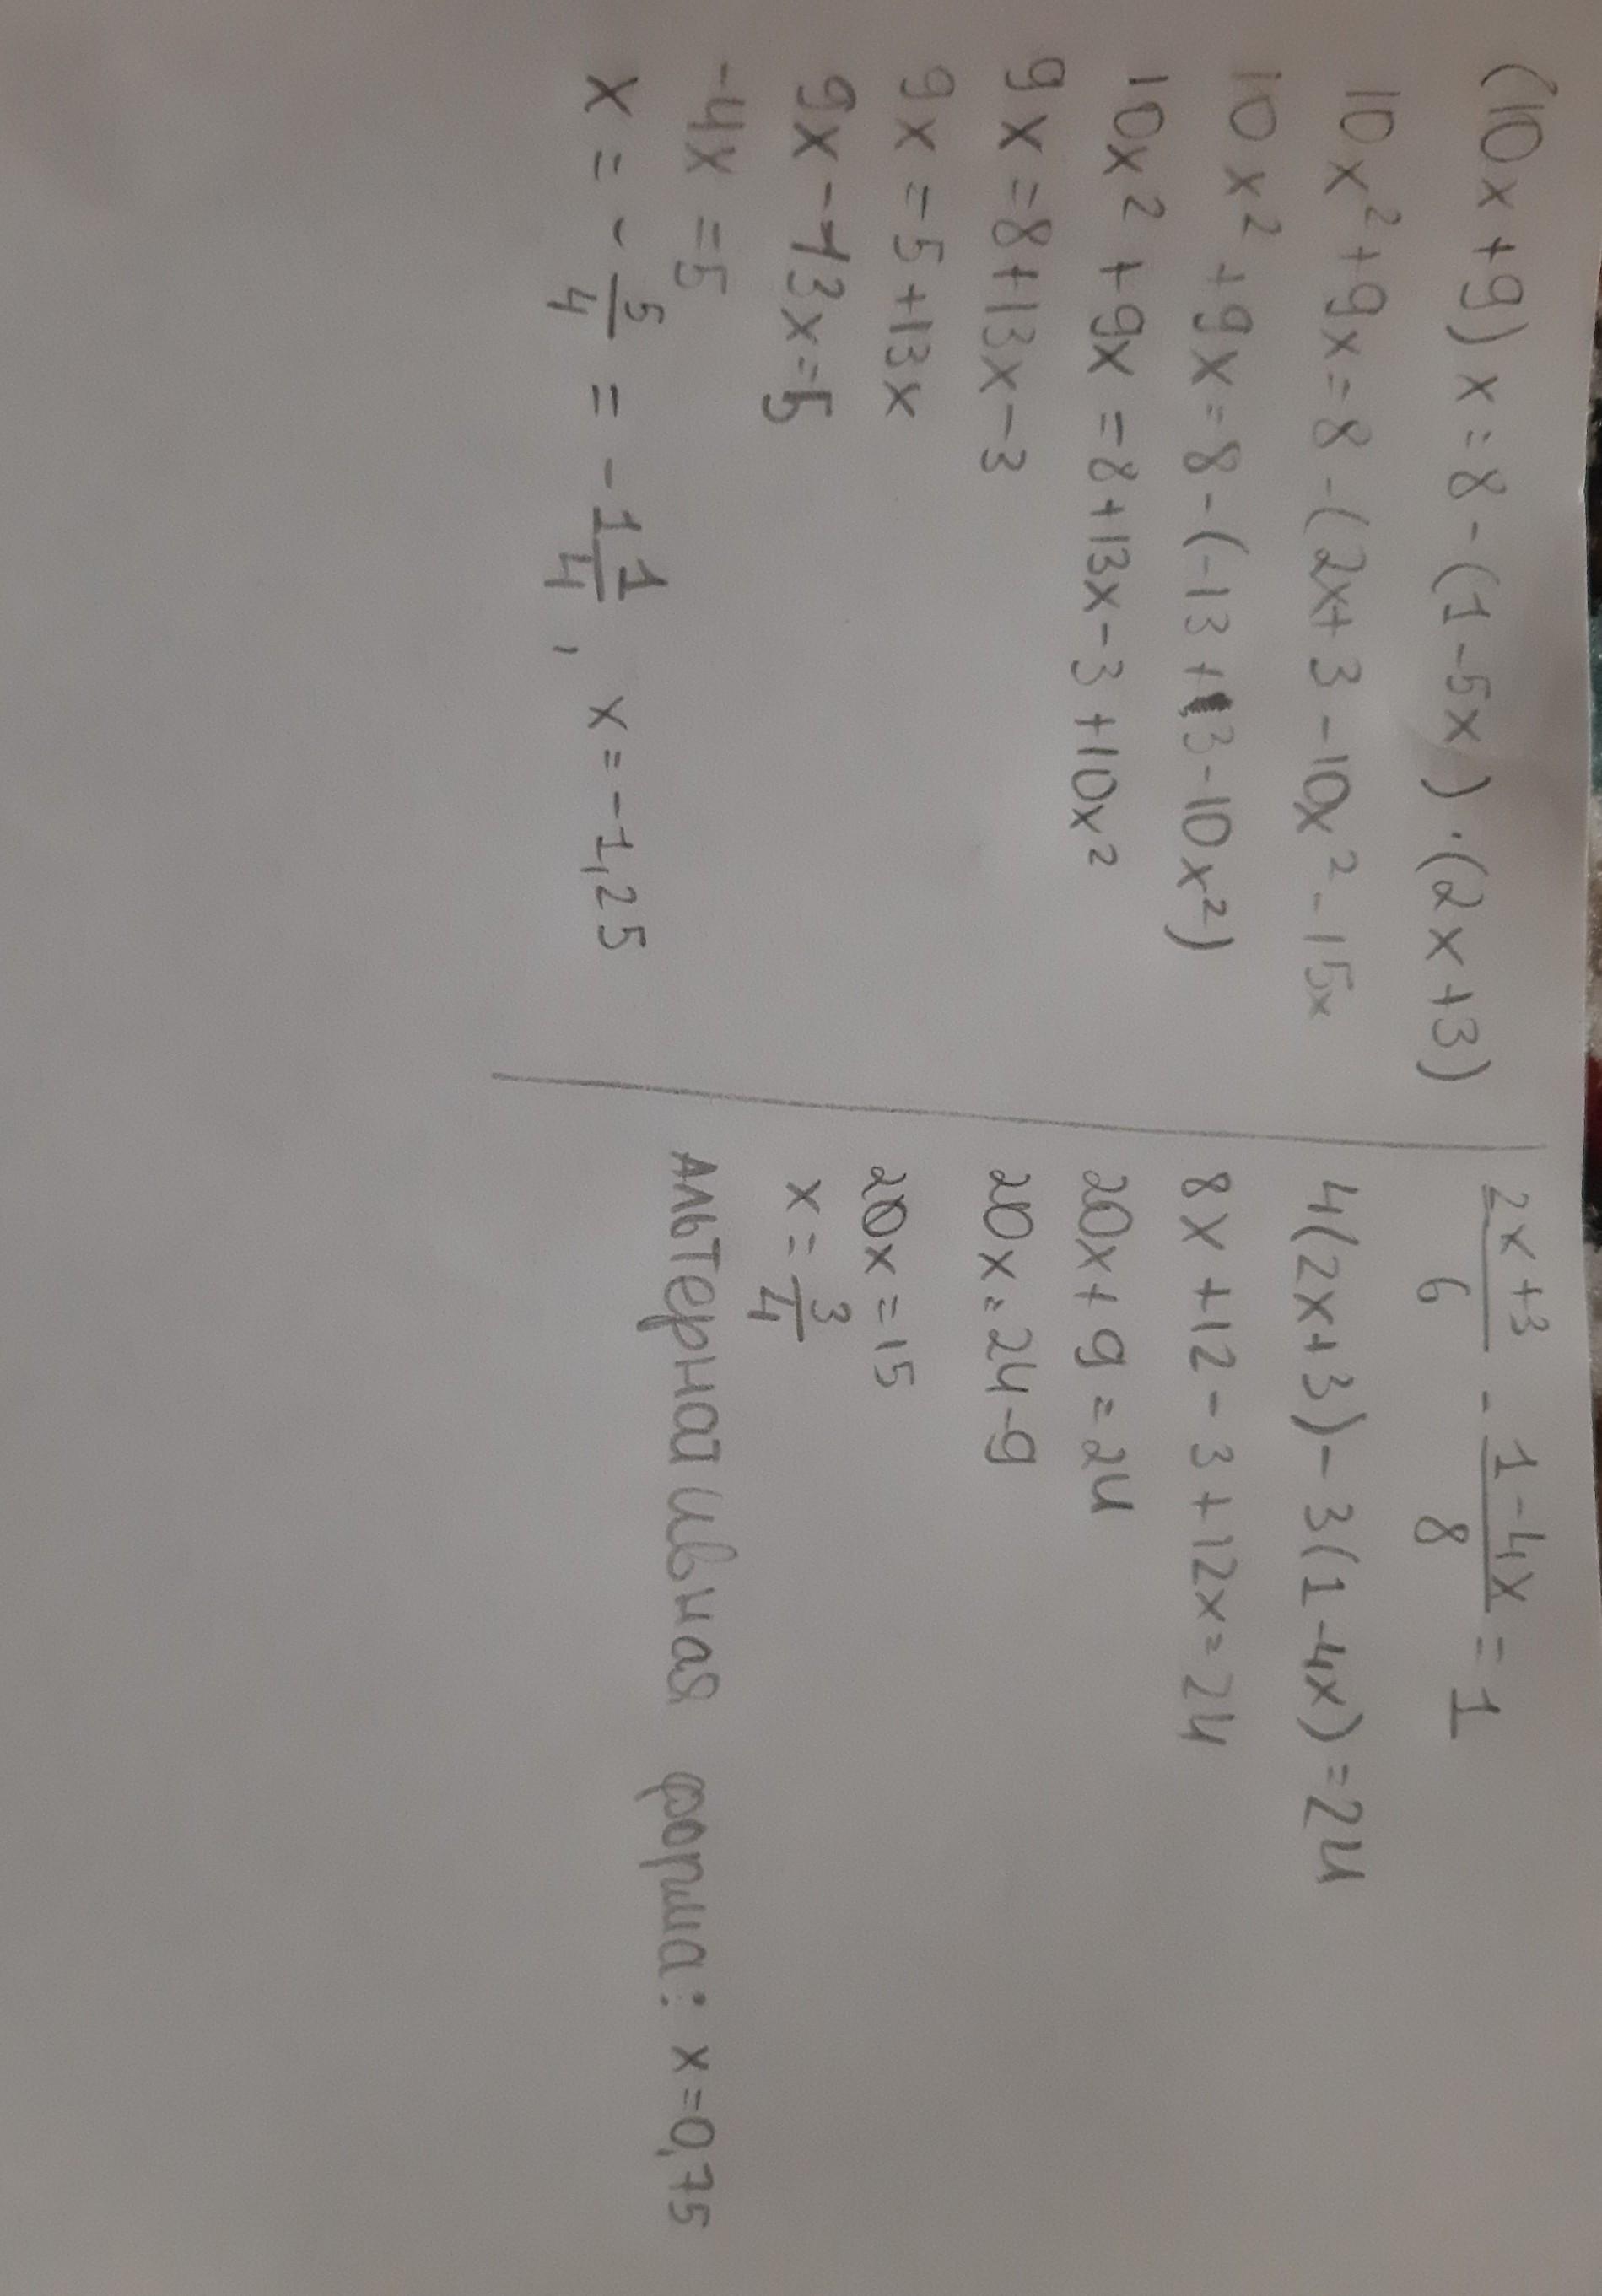 (10x+9)x=8-(1-5x)·(2x+3)
10x²+9x=8-(2x+3-10x²-15x
10x²+9x=8-(-13+3-10x²)
10x²+9x=8+13x-3+10x²
9x=8+13x-3
9x=5+13x
9x-13x=5
-4x=5
x=-5/4=-1 1/4, x=-1,25
2x+3/6-1-4x/8=1
4(2x+3)-3(1-4x)=24
8x+12-3+12x=24
20x+9=24
20x=24-9
20x=15
x=3/4
Альтернативная форма: x=0,75